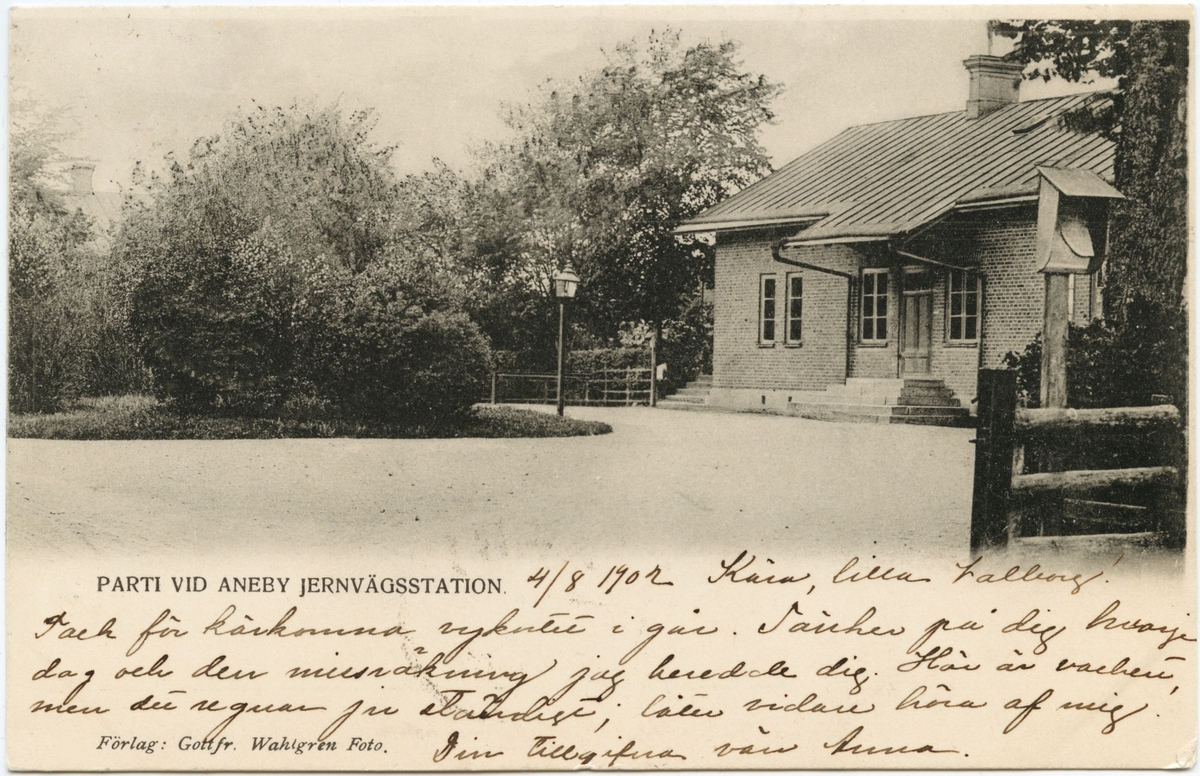 PARTI VID ANEBY JERNVÄGSSTATION. 4/8 1902 Kära, lilla Valborg!
Tack för kärkomna vykortet i går. Tänker på dig hvarje
dag och den missräkning jag beredde dig. Här är vackert,
men det regnar ju ständigt; låter vidare höra af mig.
Förlag: Gottfr. Wahlgren Foto. Din tillgifna vän Anna.